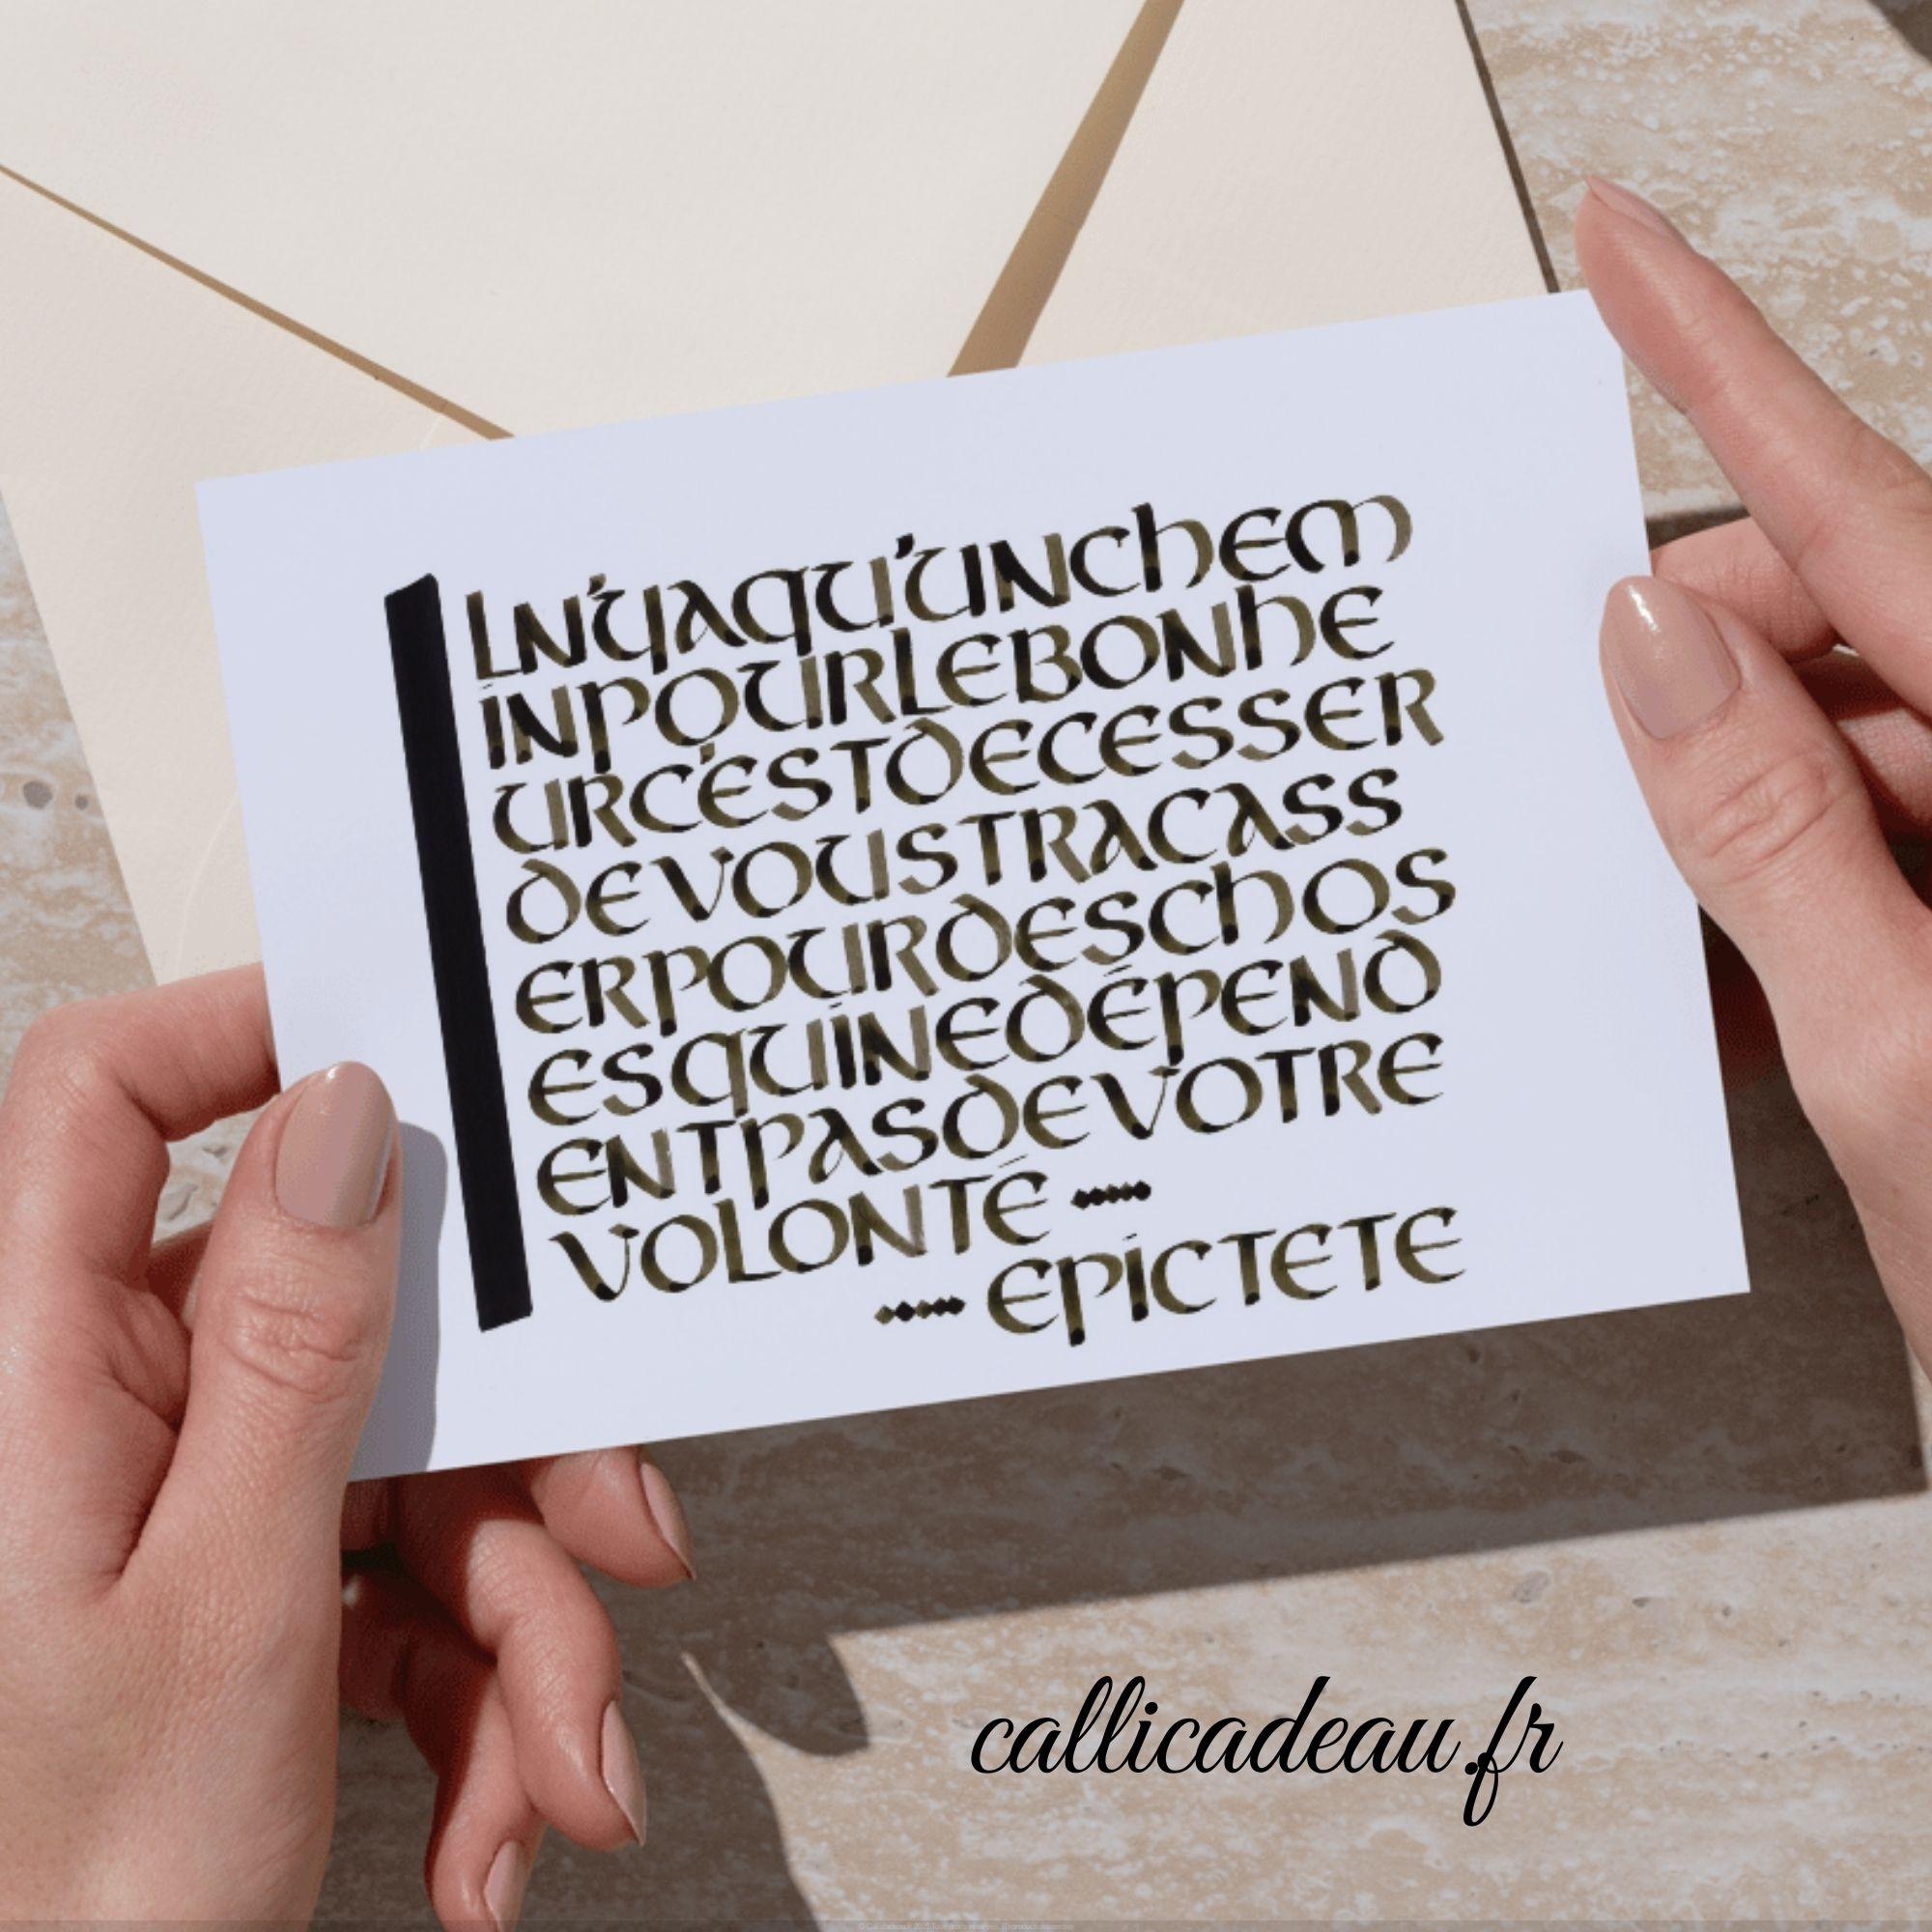 ILN'YAQU'UNCHEM
INPOURLEBONHE
URC'ESTDECESSER
DEVOUSTRACASS
ERPOURDESCHOS
ESQUINEDÉPEND
ENTPASDEVOTRE
VOLONTÉ
EPICTETE
callicadeau.fr